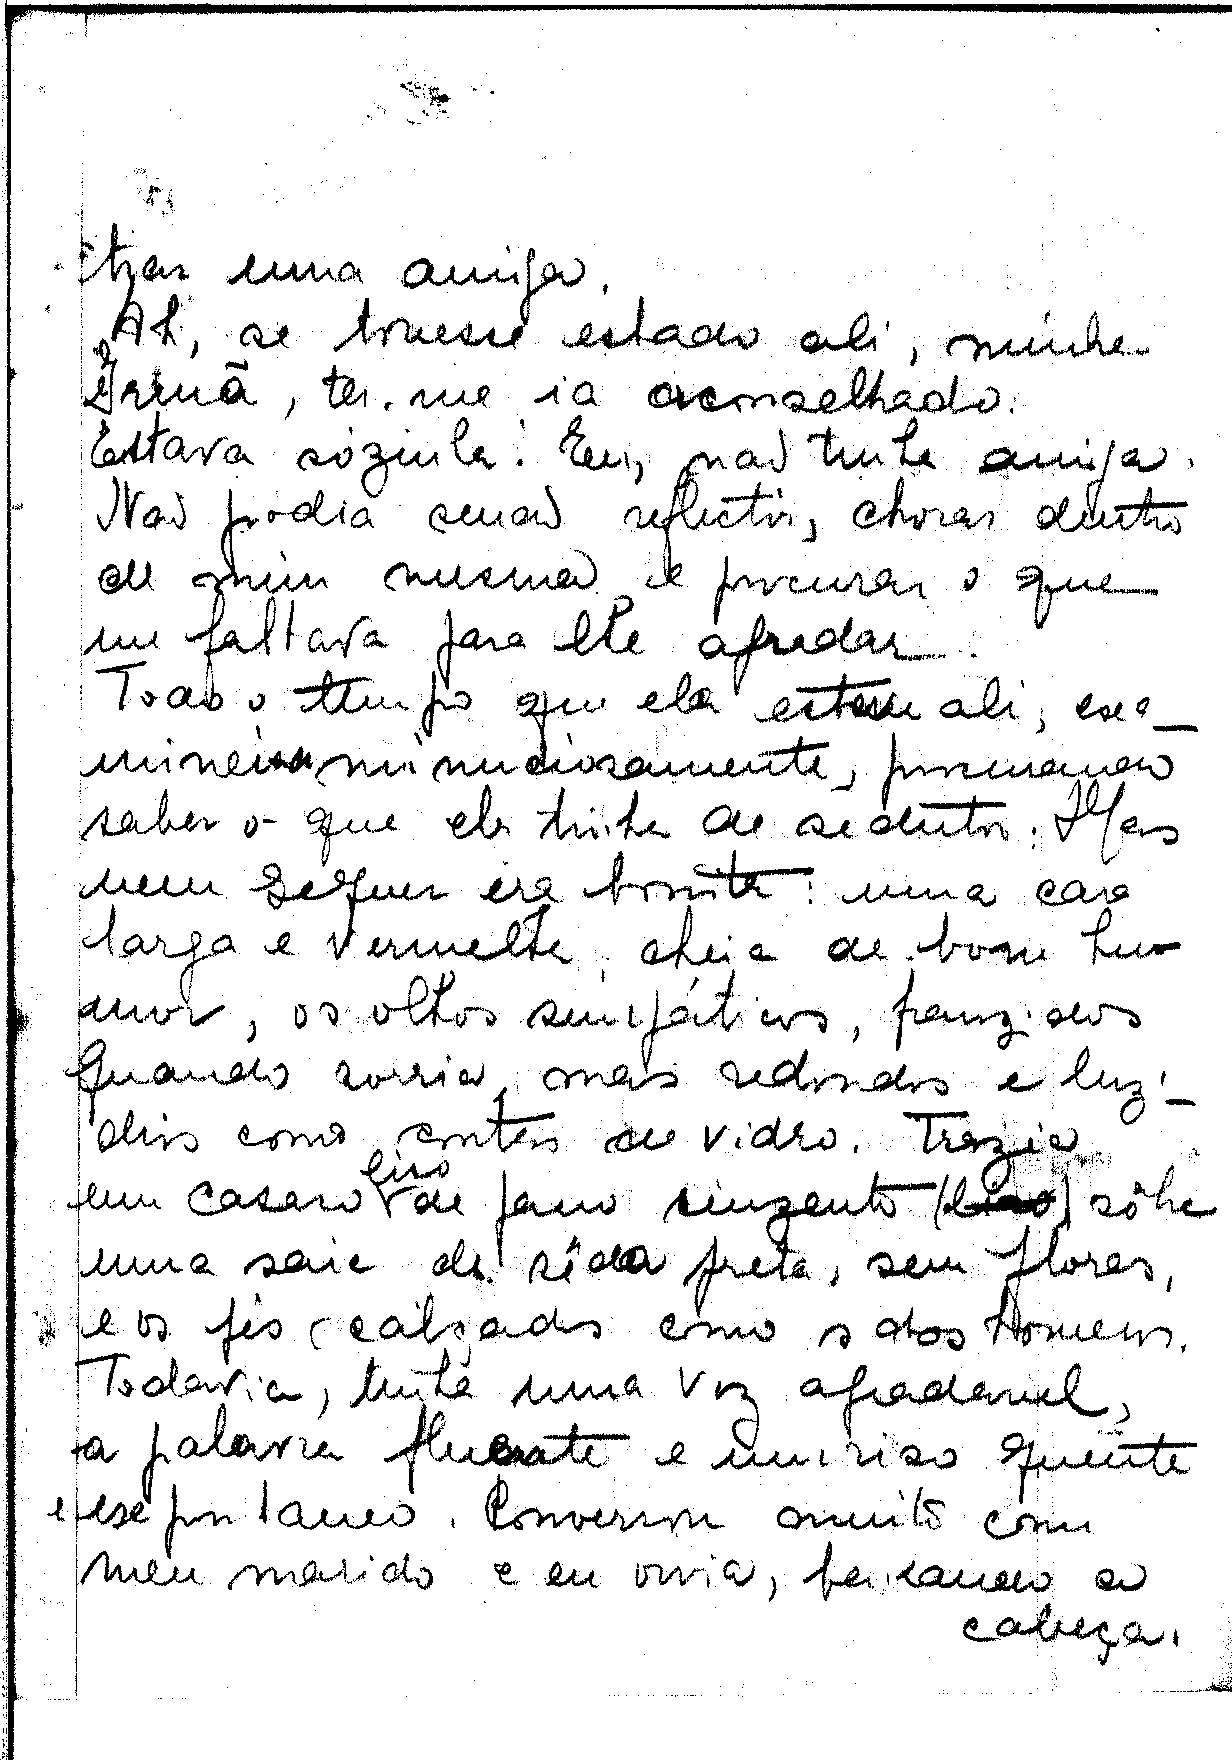 trar uma amiga.
Ah, se tivesse estado ali, minha
Irmã, ter-me ia aconselhado.
Estava sózinha! Eu, não tinha amiga.
Não podia senão reflectir, chorar dentro
de mim mesma e procurar o que
me faltava para lhe agradar.
Todo o tempo que ela esteve ali, exa-
minei-a minuciosamente, procurando
saber o que ela tinha de sedutor. Mas
nem sequer era bonita: uma cara
larga e vermelha, cheia de bom hu-
mor, os olhos simpáticos, franzidos
quando sorria, mas redondos e luzi-
dios como contas de vidro. Trazia
um casaco liso de pano cinzento (liso) sôbre
uma saia de sêda preta, sem flores,
e os pés calçados como os dos homens.
Todavia, tinha uma voz agradavel,
a palavra fluente e um riso quente
e expontaneo. Conversou muito com
meu marido e eu ouvia, baixando a
cabeça.